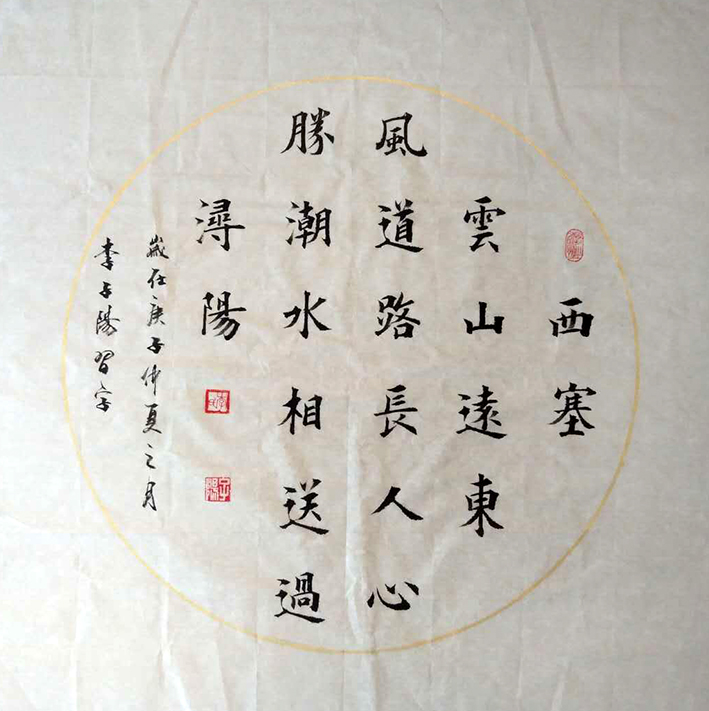 西塞
雲山遠東
風道路長人心
勝潮水相送過
潯陽
歲在庚子仲夏之月
李子陽習字